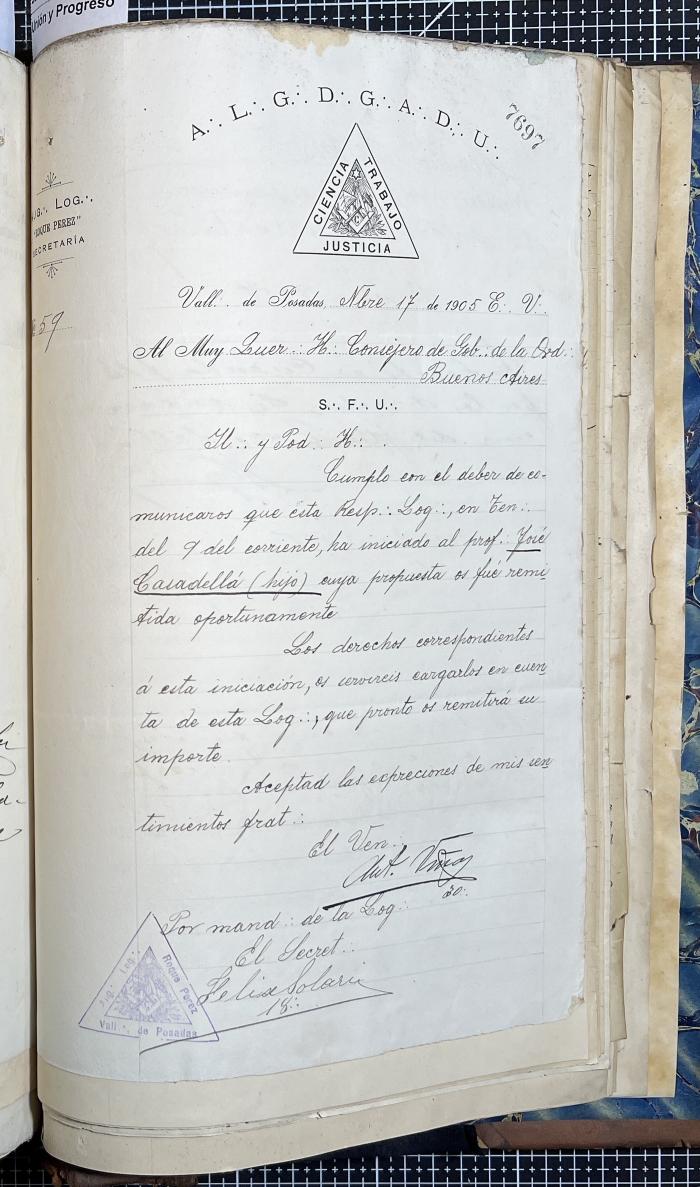 Unión y Progreso
A∴ L∴ G∴ D∴ G∴ A∴ D∴ U∴
7697
CIENCIA
TRABAJO
JUSTICIA
LOG∴
"ROQUE PEREZ"
SECRETARÍA
59
Vall∴ de Posadas, Nbre 17 de 1905 E∴ V∴
Al Muy Quer∴ H∴ Consejero de Gob∴ de la Ord∴
Buenos Aires
S∴ F∴ U∴
Il∴ y Pod∴ H∴
Cumplo con el deber de co-
municaros que ésta Resp∴ Log∴, en Ten∴
del 9 del corriente, ha iniciado al prof∴ José
Casadellá (hijo) cuya propuesta os fué remi
tida oportunamente
Los derechos correspondientes
á esta iniciación, os servireis cargarlos en cuen
ta de esta Log∴, que pronto os remitirá su
importe.
Aceptad las expreciones de mis sen
timientos frat∴
El Ven∴
Ant.
30∴
Por mand∴ de la Log∴
El Secret∴
Felix Solari
18∴
Aug∴ Log∴
Roque Perez
Vall∴ de Posadas